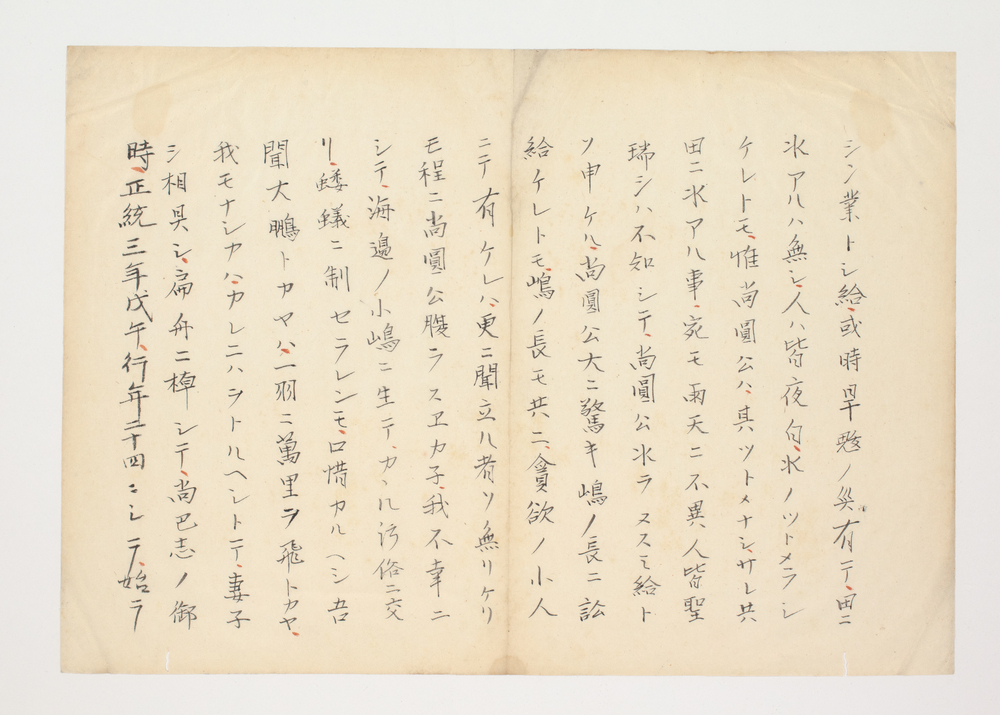 シン業トシ給、或時旱魃ノ災有テ、田ニ
水アルハ無シ、人ハ皆夜白、水ノツトメヲシ
ケレトモ、惟尚圓公ハ、其ツトメナシ、サレ共
田ニ水アル事、宛モ雨天ニ不異、人皆聖
瑞シハ不知シテ、尚圓公水ヲヌスミ給ト
ソ申ケル、尚圓公大ニ驚キ嶋ノ長ニ訟
給ケレトモ、嶋ノ長モ共ニ、貪欲ノ小人
ニテ有ケレハ、更ニ聞立ル者ソ無リケリ
モ程ニ尚圓公腹ヲスヱカ子、我不幸ニ
シテ、海邉ノ小嶋ニ生テ、カヽル汚俗ニ交
リ、螻蟻ニ制セラレンモ、口惜カルヘシ吾
聞大鵬トカヤハ、一羽ニ萬里ヲ飛トカヤ、
我モナシカハ、カレニハヲトルヘシトテ、妻子
シ相具シ、扁舟ニ棹シテ、尚巴志ノ御
時、正統三年戊午、行年二十四ニシテ、始テ